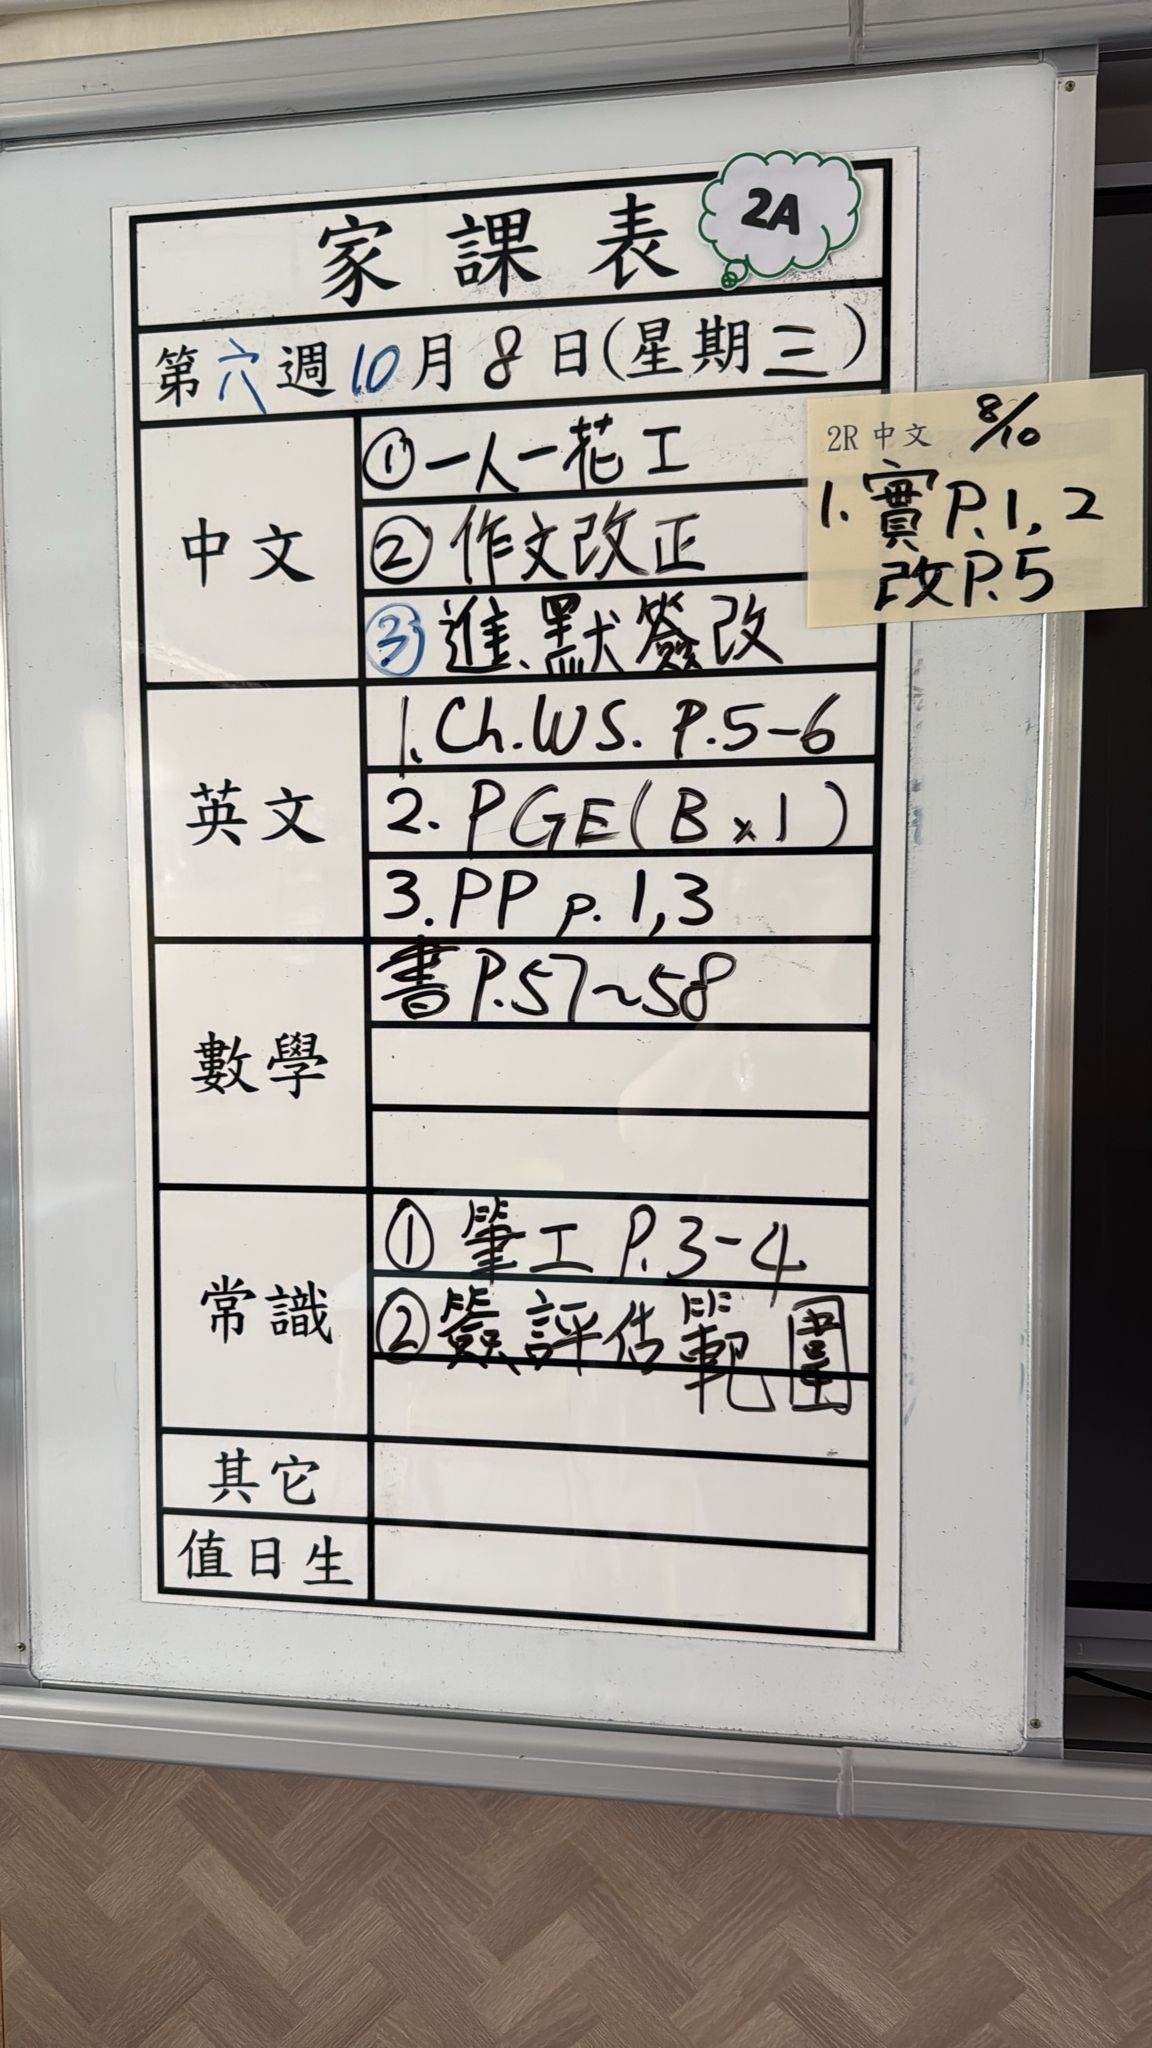 家課表
2A
第六週10月8日(星期三)
中文
①一人一花工
②作文改正
③進、默簽改
2R中文 8/10
1. 實P.1, 2
改P.5
英文
1. Ch.WS. P.5-6
2. PGE(B×1)
3. PP p. 1,3
數學
書P.57~58
常識
①筆工P.3-4
②簽評估範圍
其它
值日生